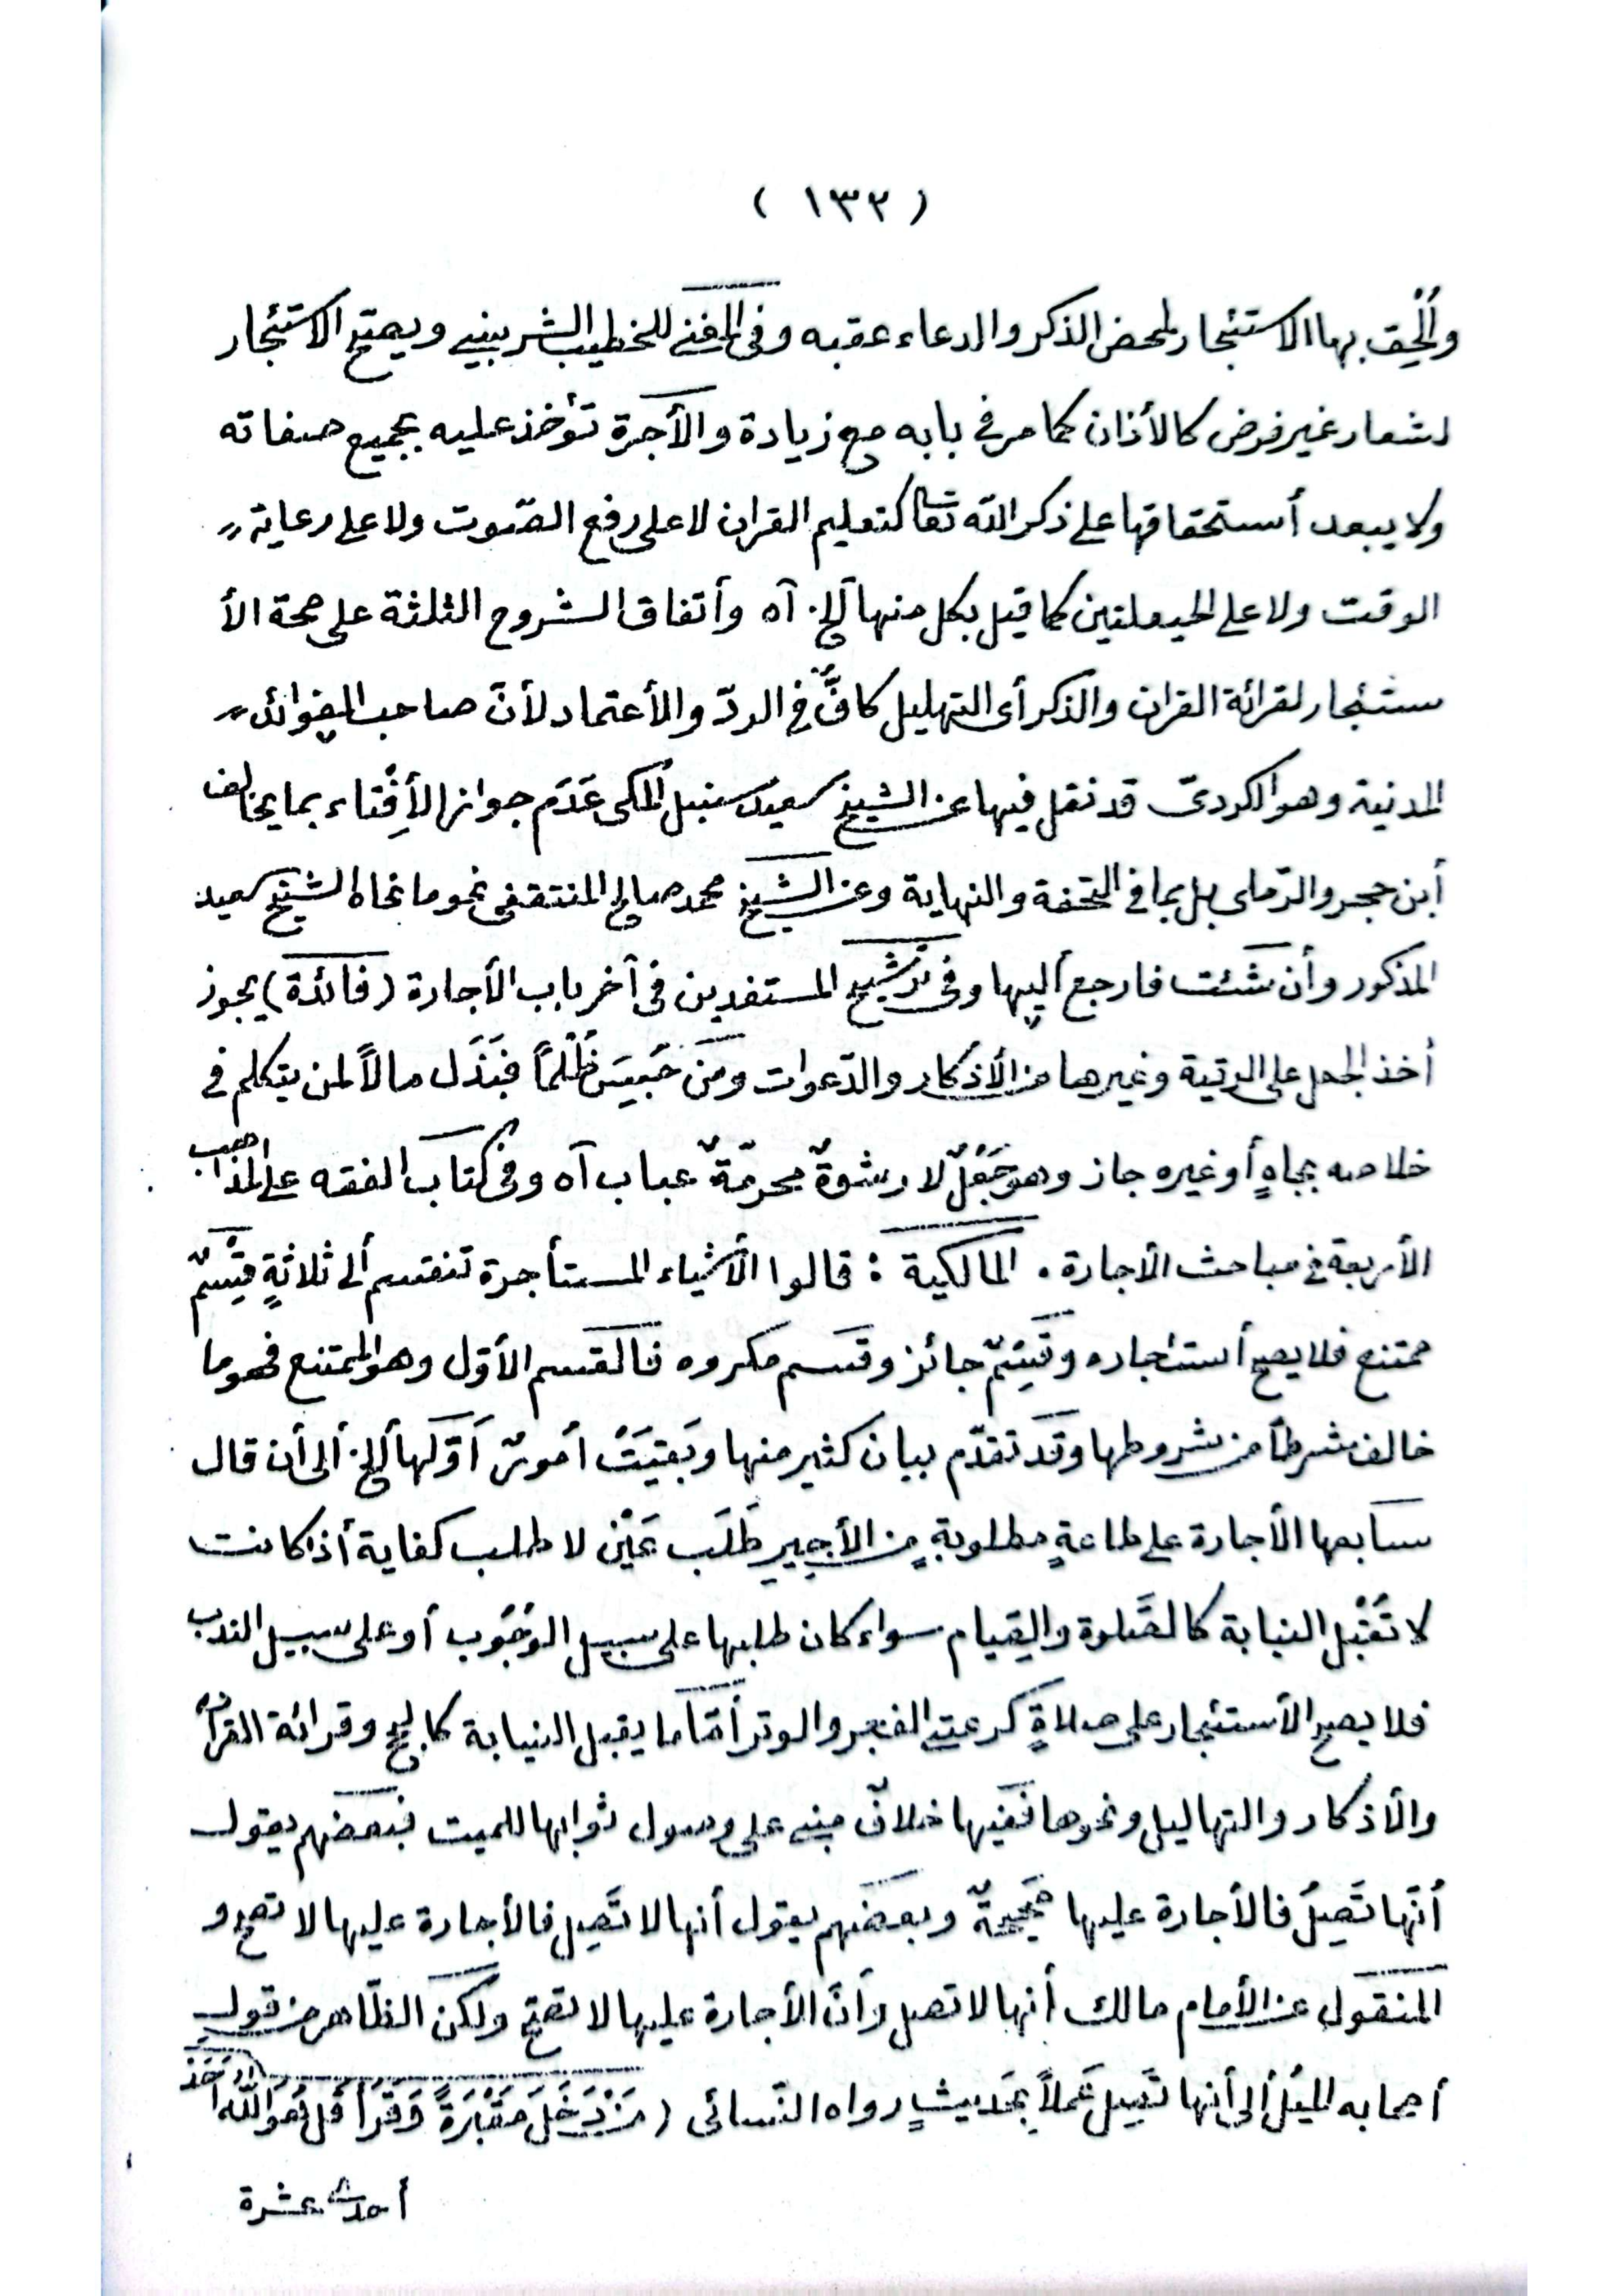 ( ١٣٢ )
وأُلْحِق بها الاستئجار لمحض الذكر والدعاء عقبه وفى المغني للخطيب الشربيني ويصح الاستئجار
لشعار غير فرض كالأذان كما مر في بابه مع زيادة والأجرة تؤخذ عليه بجميع صفاته
ولا يبعد أستحقاقها على ذكر الله تعالى كتعليم القران لا على رفع الصّوت ولا على رعاية
الوقت ولا على الحيعلتين كما قيل بكل منها آلخ. آه وأتفاق الشروح الثلثة على صحة الأ
ستئجار لقرائة القران والذكر أى التهليل كافٌ في الردّ والأعتماد لأنّ صاحب الفوائد
المدنية وهو الكردىّ قد نقل فيها عن الشيخ سعيد سنبل المكى عَدَم جواز الأِفْتاء بما يخالف
أبن حجر والرّملى بل بما في التحفة والنهاية وعن الشيخ محمد صالح المنتقفى نحو ما نحاه الشيخ سعيد
المذكور وأن شئت فارجع أليها وفى ترشيح المستفدين فى آخر باب الأجارة (فائدة) يجوز
أخذ الجعل على الرقية وغيرها من الأذكار والدّعوات ومَن حُبِسَ ظُلْماً فبَذَل مالاً لمن يتكلم في
خلاصه بجاهٍ أو غيره جاز وهو جُعْلٌ لا رشوةٌ محرمّةٌ عباب آه وفى كتاب الفقه على المذاهب
الأربعة في مباحث الأجارة . المالكية : قالوا الأشياء المستأجرة تنقسم ألى ثلاثةٍ قِسْمٌ
ممتنع فلا يصح أستئجاره وقِسْمٌ جائز وقسم مكروه فالقسم الأوّل وهو الممتنع فهو ما
خالف شرطاً من شروطها وقد تقدّم بيان كثير منها وبَقِيَتْ أمورٌ أَوّلها ألخ. ألى أن قال
سابعها الأجارة على طاعةٍ مطلوبةٍ من الأجيرِ طَلَب عَيْن لا طلب كفاية أذا كانت
لا تَقْبَل النيابة كالصّلوة والصِيام سواء كان طلبها على سبيل الوُجُوب أو على سبيل الندب
فلا يصح الأستئجار على صلاةٍ كركعتي الفجر والوتر أمّا ما يقبل النيابة كالحج وقرائة القرآن
والأذكار والتهاليل ونحوها ففيها خلافٌ مبني على وصول ثوابها للميت فبعضهم يقول
أنّها تَصِلُ فالأجارة عليها صحيحةٌ وبعضهم يقول أنها لا تَصِل فالأجارة عليها لا تصح و
المنقول عن الأمام مالك أنها لا تصل وأنّ الأجارة عليها لا تصح ولكن الظّاهر من قول
أصحابه الميْل ألى أنها تَصِل عَملاً بحَديثٍ رواه النّسائى ( مَنْ دَخَلَ مَقْبَرَةً وَقَرَأَ قُلْ هُوَ اللّه أَحَد
أحدى عشرة